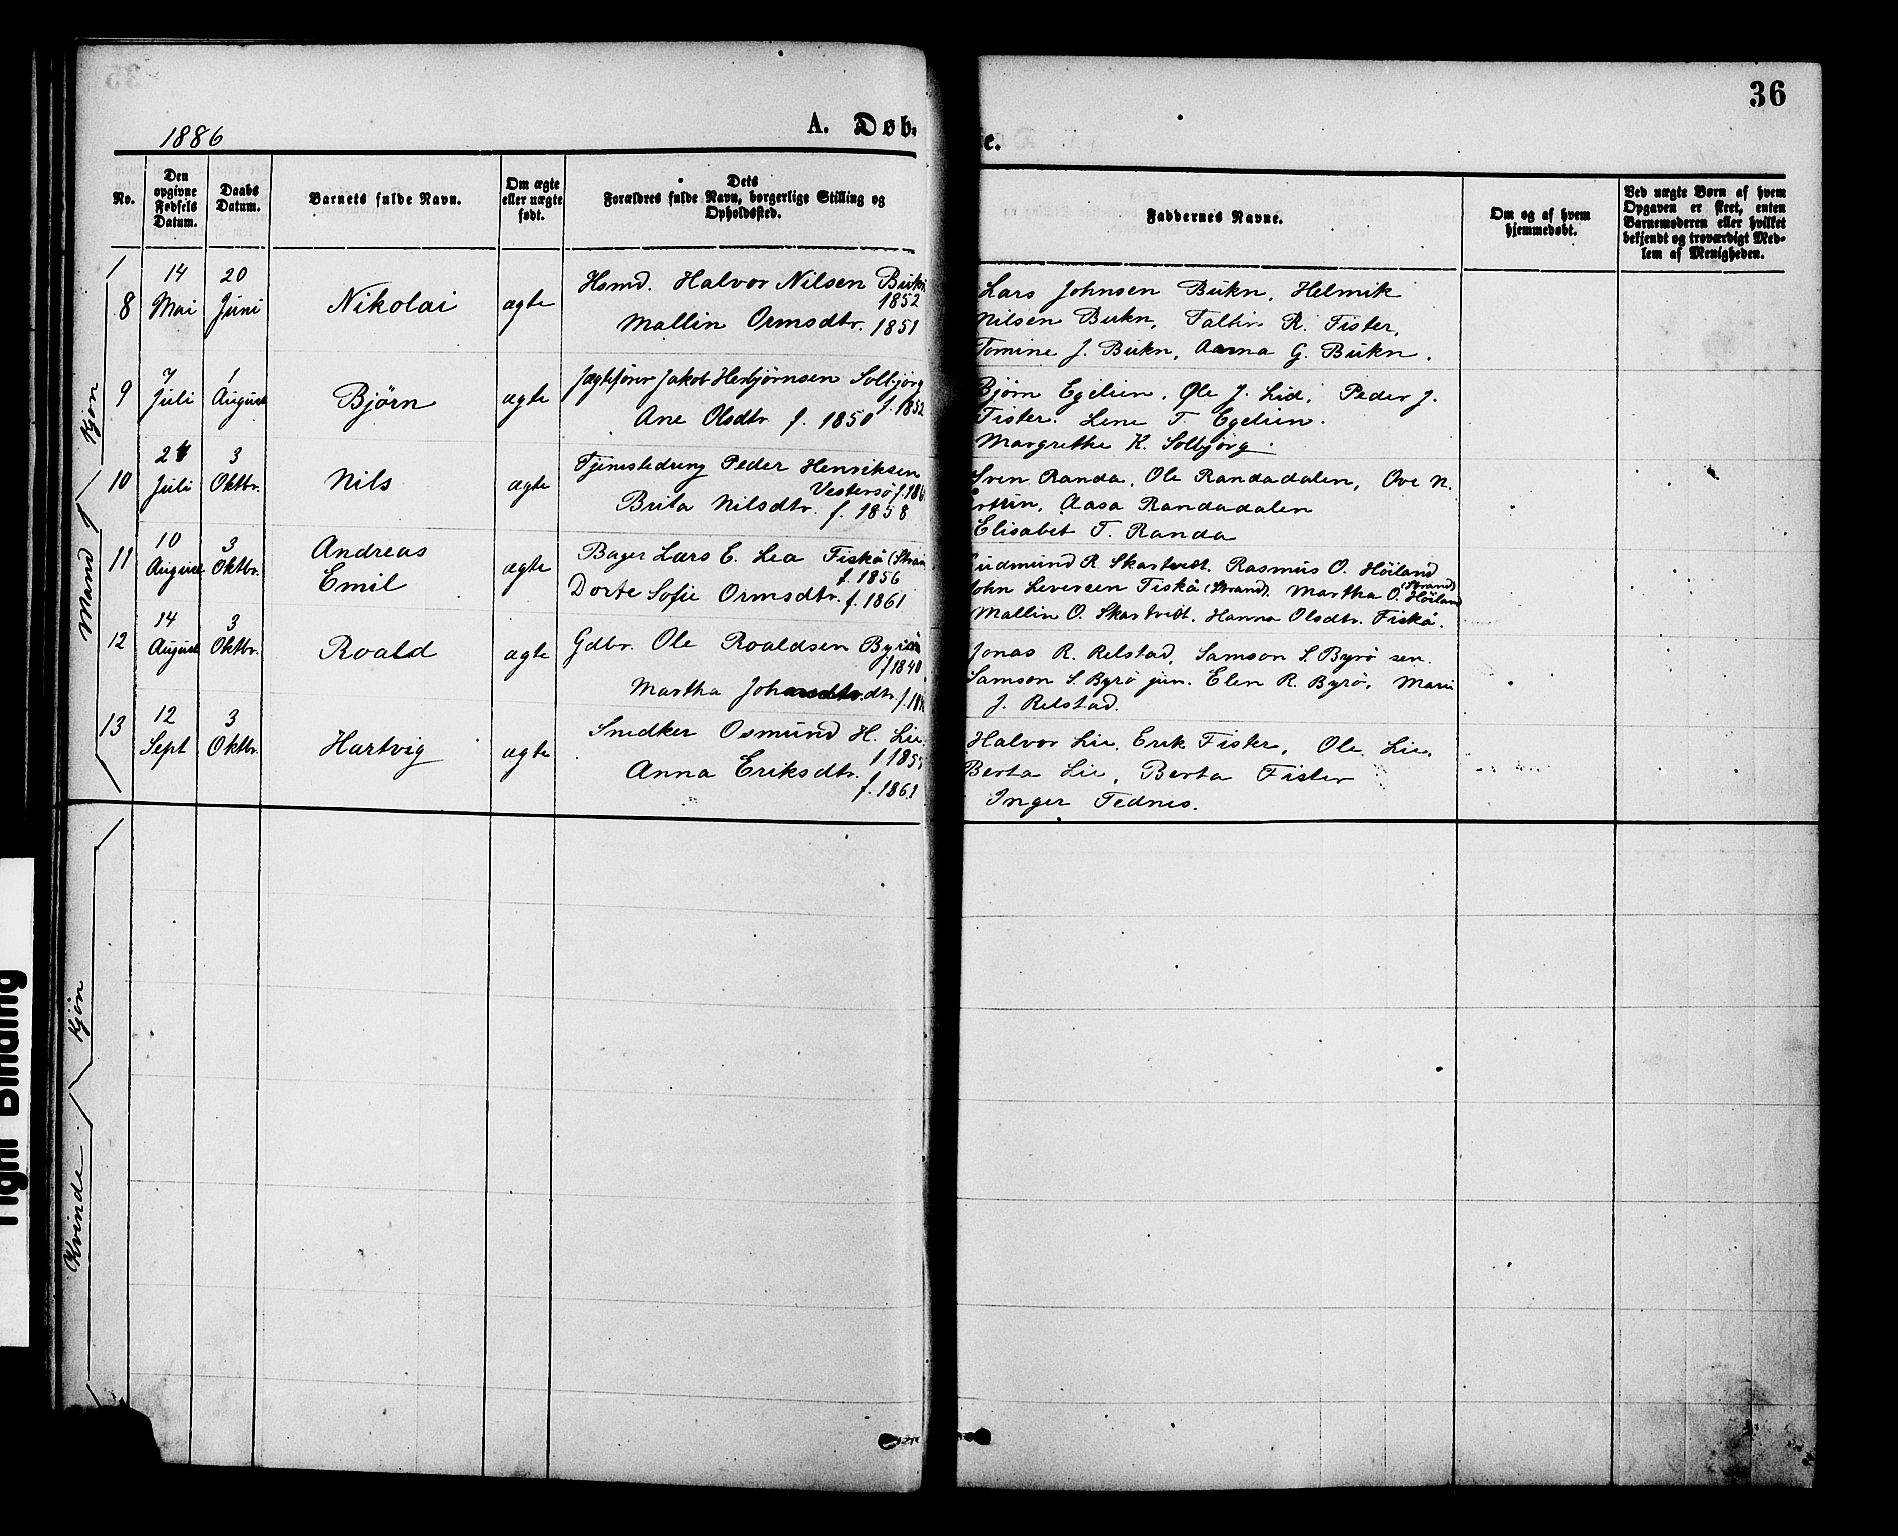 36
1886
A. Døb-
e.
No.
Den opgivne Fødsels Datum.
Daabs Datum.
Barnets fulde Navn.
Om ægte eller uægte født.
Dets Forældres fulde Navn, borgerlige Stilling og Opholdssted.
Faddernes Navne.
Om og af hvem hjemmedøbt.
Ved uægte Børn af hvem Opgaven er skeet, enten Barnemoderen eller hvilket bekjendt og troværdigt Medlem af Menigheden.
Mand Kjøn
8 14 Mai 20 Juni Nikolai ægte Hsmd. Halvor Nilsen
1852
Mallin Ormsdtr. 1851
Lars Johnsen Bükn, Helmik
Nilsen Bükn, R. Fister,
Tomine J. Bükn, G. Bükn.
9 7 Juli 1 August Björn ægte Jægtefører Jakob Herbjørnsen Solbjørg
f. 1852
Ane Olsdtr f. 1850
Bjørn Egeliien. Ole J. Lid, Peder J.
Fister. Lene T. Egeliien.
Margrethe K. Solbjørg.
10 Juli 3 Oktbr. Nils ægte Peder Henriksen
Vestersø
Brita Nilsdtr. f. 1858
Sven Randa, Ole Randadalen, Ove N.
Aasa Randadalen
Elisabet T. Randa
11 10 August 3 Oktbr. Andreas Emil ægte Bager Lars E. Lea Fiskå
f. 1856
Dorte Sofie Ormsdtr. f. 1861
Gudmund R. Skartvedt. Rasmus O. Høiland
John Severeen Fiskå (Strand). Martha O. Høiland (Strand)
Mallin O. Skartvedt. Hanna Olsdtr. Fiskå.
12 14 August 3 Oktbr. Roald ægte Gdbr. Ole Roaldsen
f 1840
Martha
Jonas R. Relstad, Samson S. Byrø sen.
Samson S. Byrø jun. Elen R. Byrø, Marie
J. Relstad.
13 12 Sept 3 Oktbr. Hartvig ægte Snedker Osmund H. Lie.
Anna Eriksdtr.
f. 1861
Halvor Lie. Erik Fister, Ole Lie,
Berta Lie, Berta Fister
Inger Tednes.
Kvinde Kjøn
Tight Binding